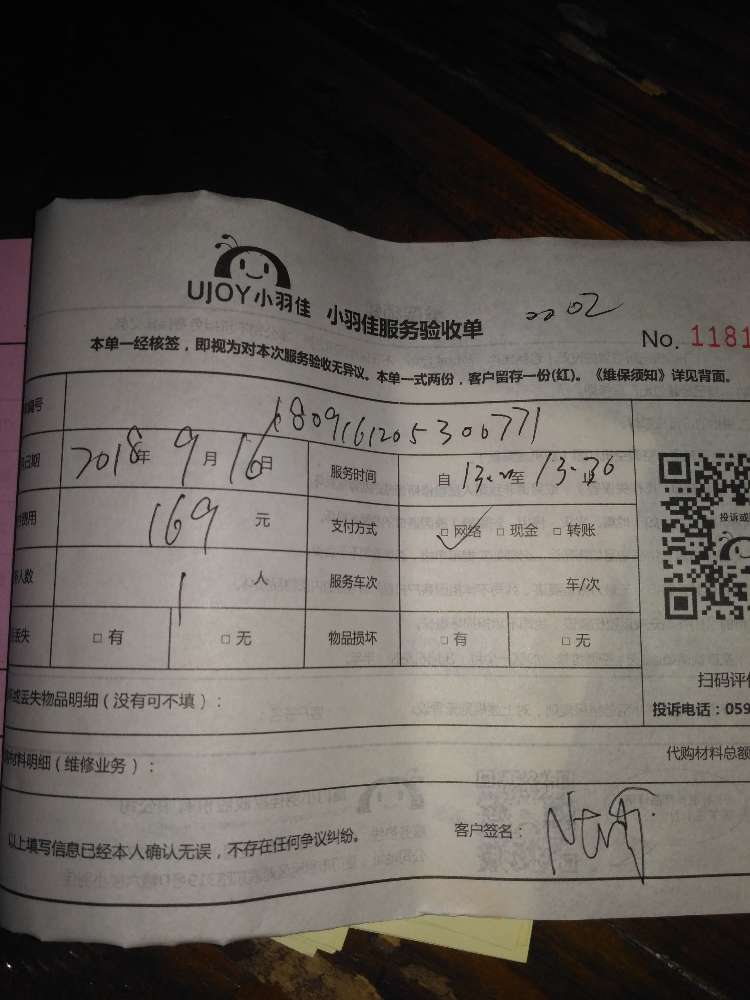 UJOY小羽佳 小羽佳服务验收单
No. 1181
本单一经核签，即视为对本次服务验收无异议。本单一式两份，客户留存一份(红)。《维保须知》详见背面。
编号 1809161205300771
日期 2018年9月16日 服务时间 自 至 13:30 止
费用 169 元 支付方式 □网络 □现金 □转账
人数 1 人 服务车次 车/次
丢失 □有 □无 物品损坏 □有 □无
投诉或
扫码评价
或丢失物品明细（没有可不填）：
投诉电话：059
材料明细（维修业务）：
代购材料总额
以上填写信息已经本人确认无误，不存在任何争议纠纷。
客户签名：